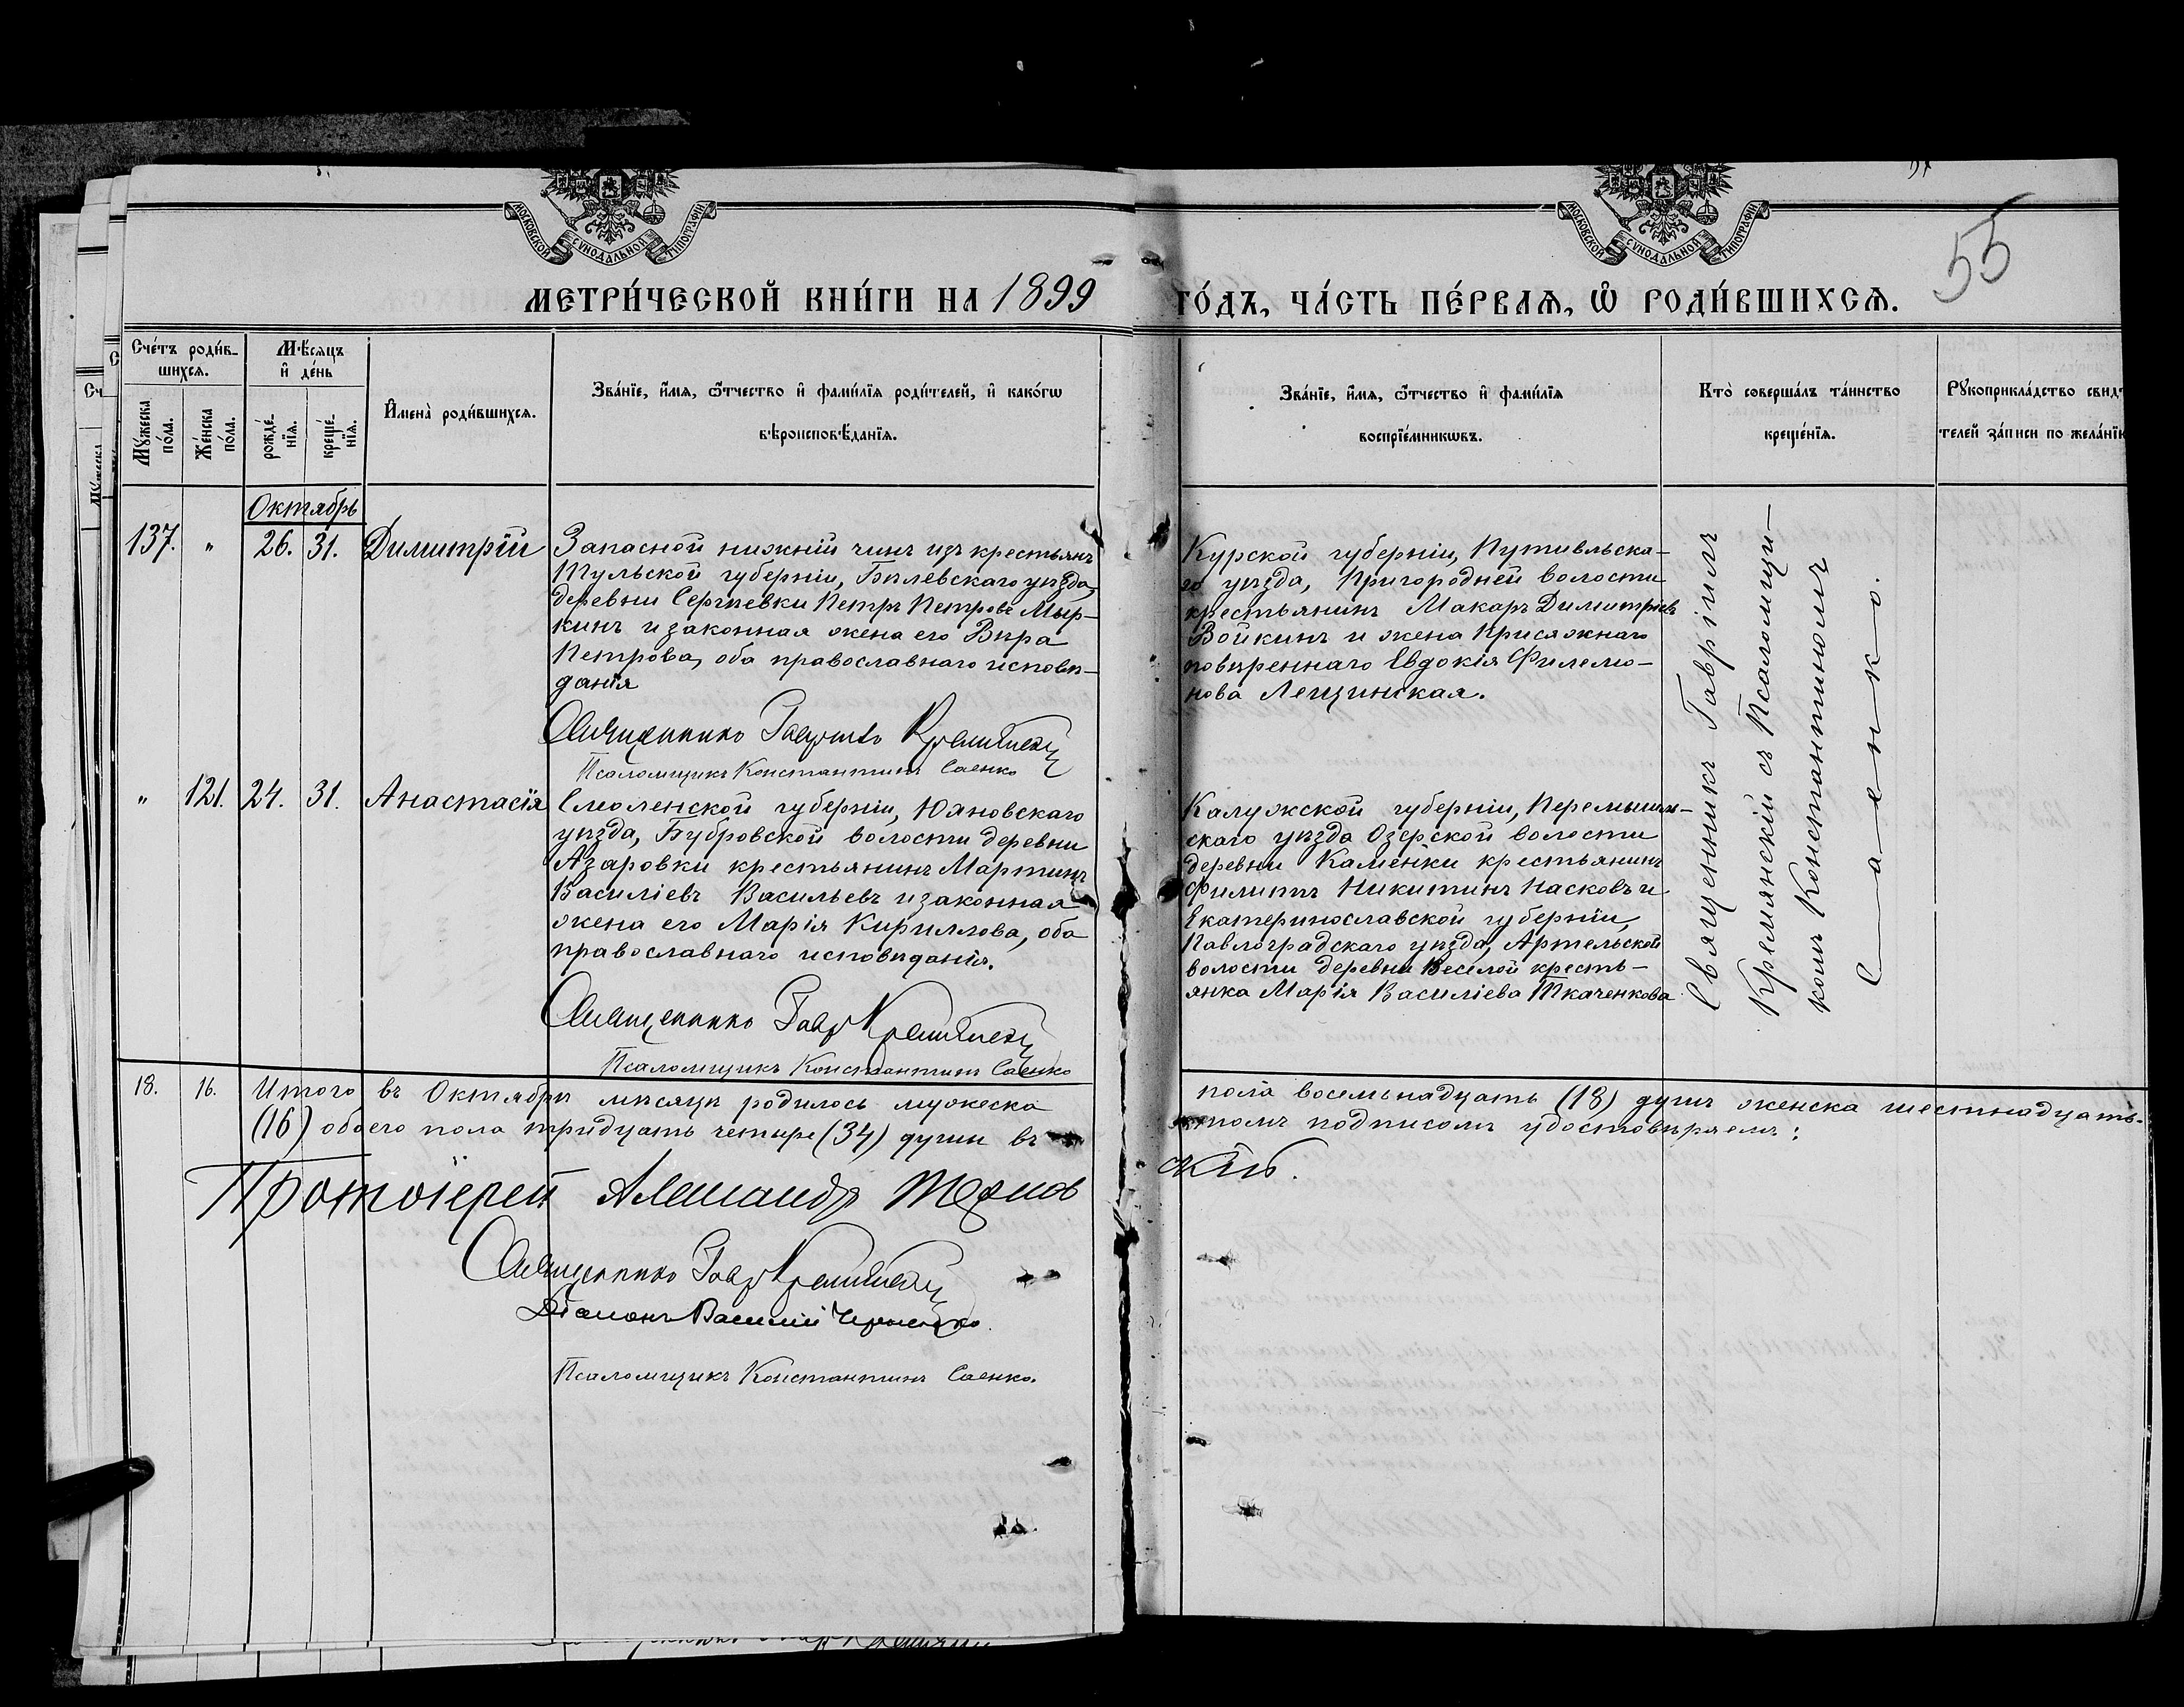 МОСКОВСКОЙ СѴНОДАЛЬНОЙ ТИПОГРАФІИ
МОСКОВСКОЙ СѴНОДАЛЬНОЙ ТИПОГРАФІИ
55
МЕТРИ́ЧЕСКОЙ КНИ́ГИ НА 1899
ГО́ДЪ, ЧА́СТЬ ПЕ́РВАЯ, Ѡ҆ РОДИ́ВШИХСЯ.
Сче́тъ роди́в-
шихся.
Мꙋ́жеска
по́ла.
Же́нска
по́ла.
Мѣ́сяцъ
и҆ де́нь
рожде́-
нїя.
креще́-
нїя.
И҆мена̀ роди́вшихся.
Зва́нїе, и҆́мя, ѻ҆́тчество и҆ фами́лїя роди́телей, и҆ како́гѡ
вѣроисповѣ́данїя.
Зва́нїе, и҆́мя, ѻ҆́тчество и҆ фами́лїя
воспрїе́мникѡвъ.
Кто̀ соверша́лъ та́инство
креще́нїя.
Рꙋкоприкла́дство свидѣ
телей за́писи по жела́нїю
Октябрь
137. „ 26. 31. Димитрій
Запасной нижній чинъ изъ крестьянъ
Тульской губерніи, Бѣлевскаго уѣзда,
деревни Сергіевки Петръ Петровъ Мыр-
кинъ и законная жена его Вѣра
Петрова, оба православнаго исповѣ-
данія
Священникъ Гавріилъ Кремянскій
Псаломщикъ Константинъ Саенко
Курской губерніи, Путивльска-
го уѣзда, Пригородней волости
крестьянинъ Макаръ Димитріевъ
Войкинъ и жена Присяжнаго
повѣреннаго Евдокія Филемо-
нова Лещинская.
„ 121. 24. 31. Анастасія
Смоленской губерніи, Юхновскаго
уѣзда, Бубровской волости деревни
Азаровки крестьянинъ Мартинъ
Василіевъ Васильевъ и законная
жена его Марія Кириллова, оба
православнаго исповѣданія.
Священникъ Гавр Кремянскій
Псаломщикъ Константинъ Саенко
Калужской губерніи, Перемышль-
скаго уѣзда Озерской волости
деревни Каменки крестьянинъ
Филиппъ Никитинъ Насковъ и
Екатеринославской губерніи,
Павлоградскаго уѣзда, Артельской
волости деревни Веселой кресть-
янка Марія Василіева Ткаченкова
Священникъ Гавріилъ
Кремянскій съ Псаломщи-
комъ Константиномъ
Саенко.
18. 16. Итого въ Октябрѣ мѣсяцѣ родилось мужеска
пола восемьнадцать (18) душъ женска шестнадцать-
(16) обоего пола тридцать четыре (34) души въ
томъ подписомъ удостовѣряемъ:
Протоіерей Александръ Терновскій.
Священникъ Гавр Кремянскій
Діаконъ Василій
Псаломщикъ Константинъ Саенко.